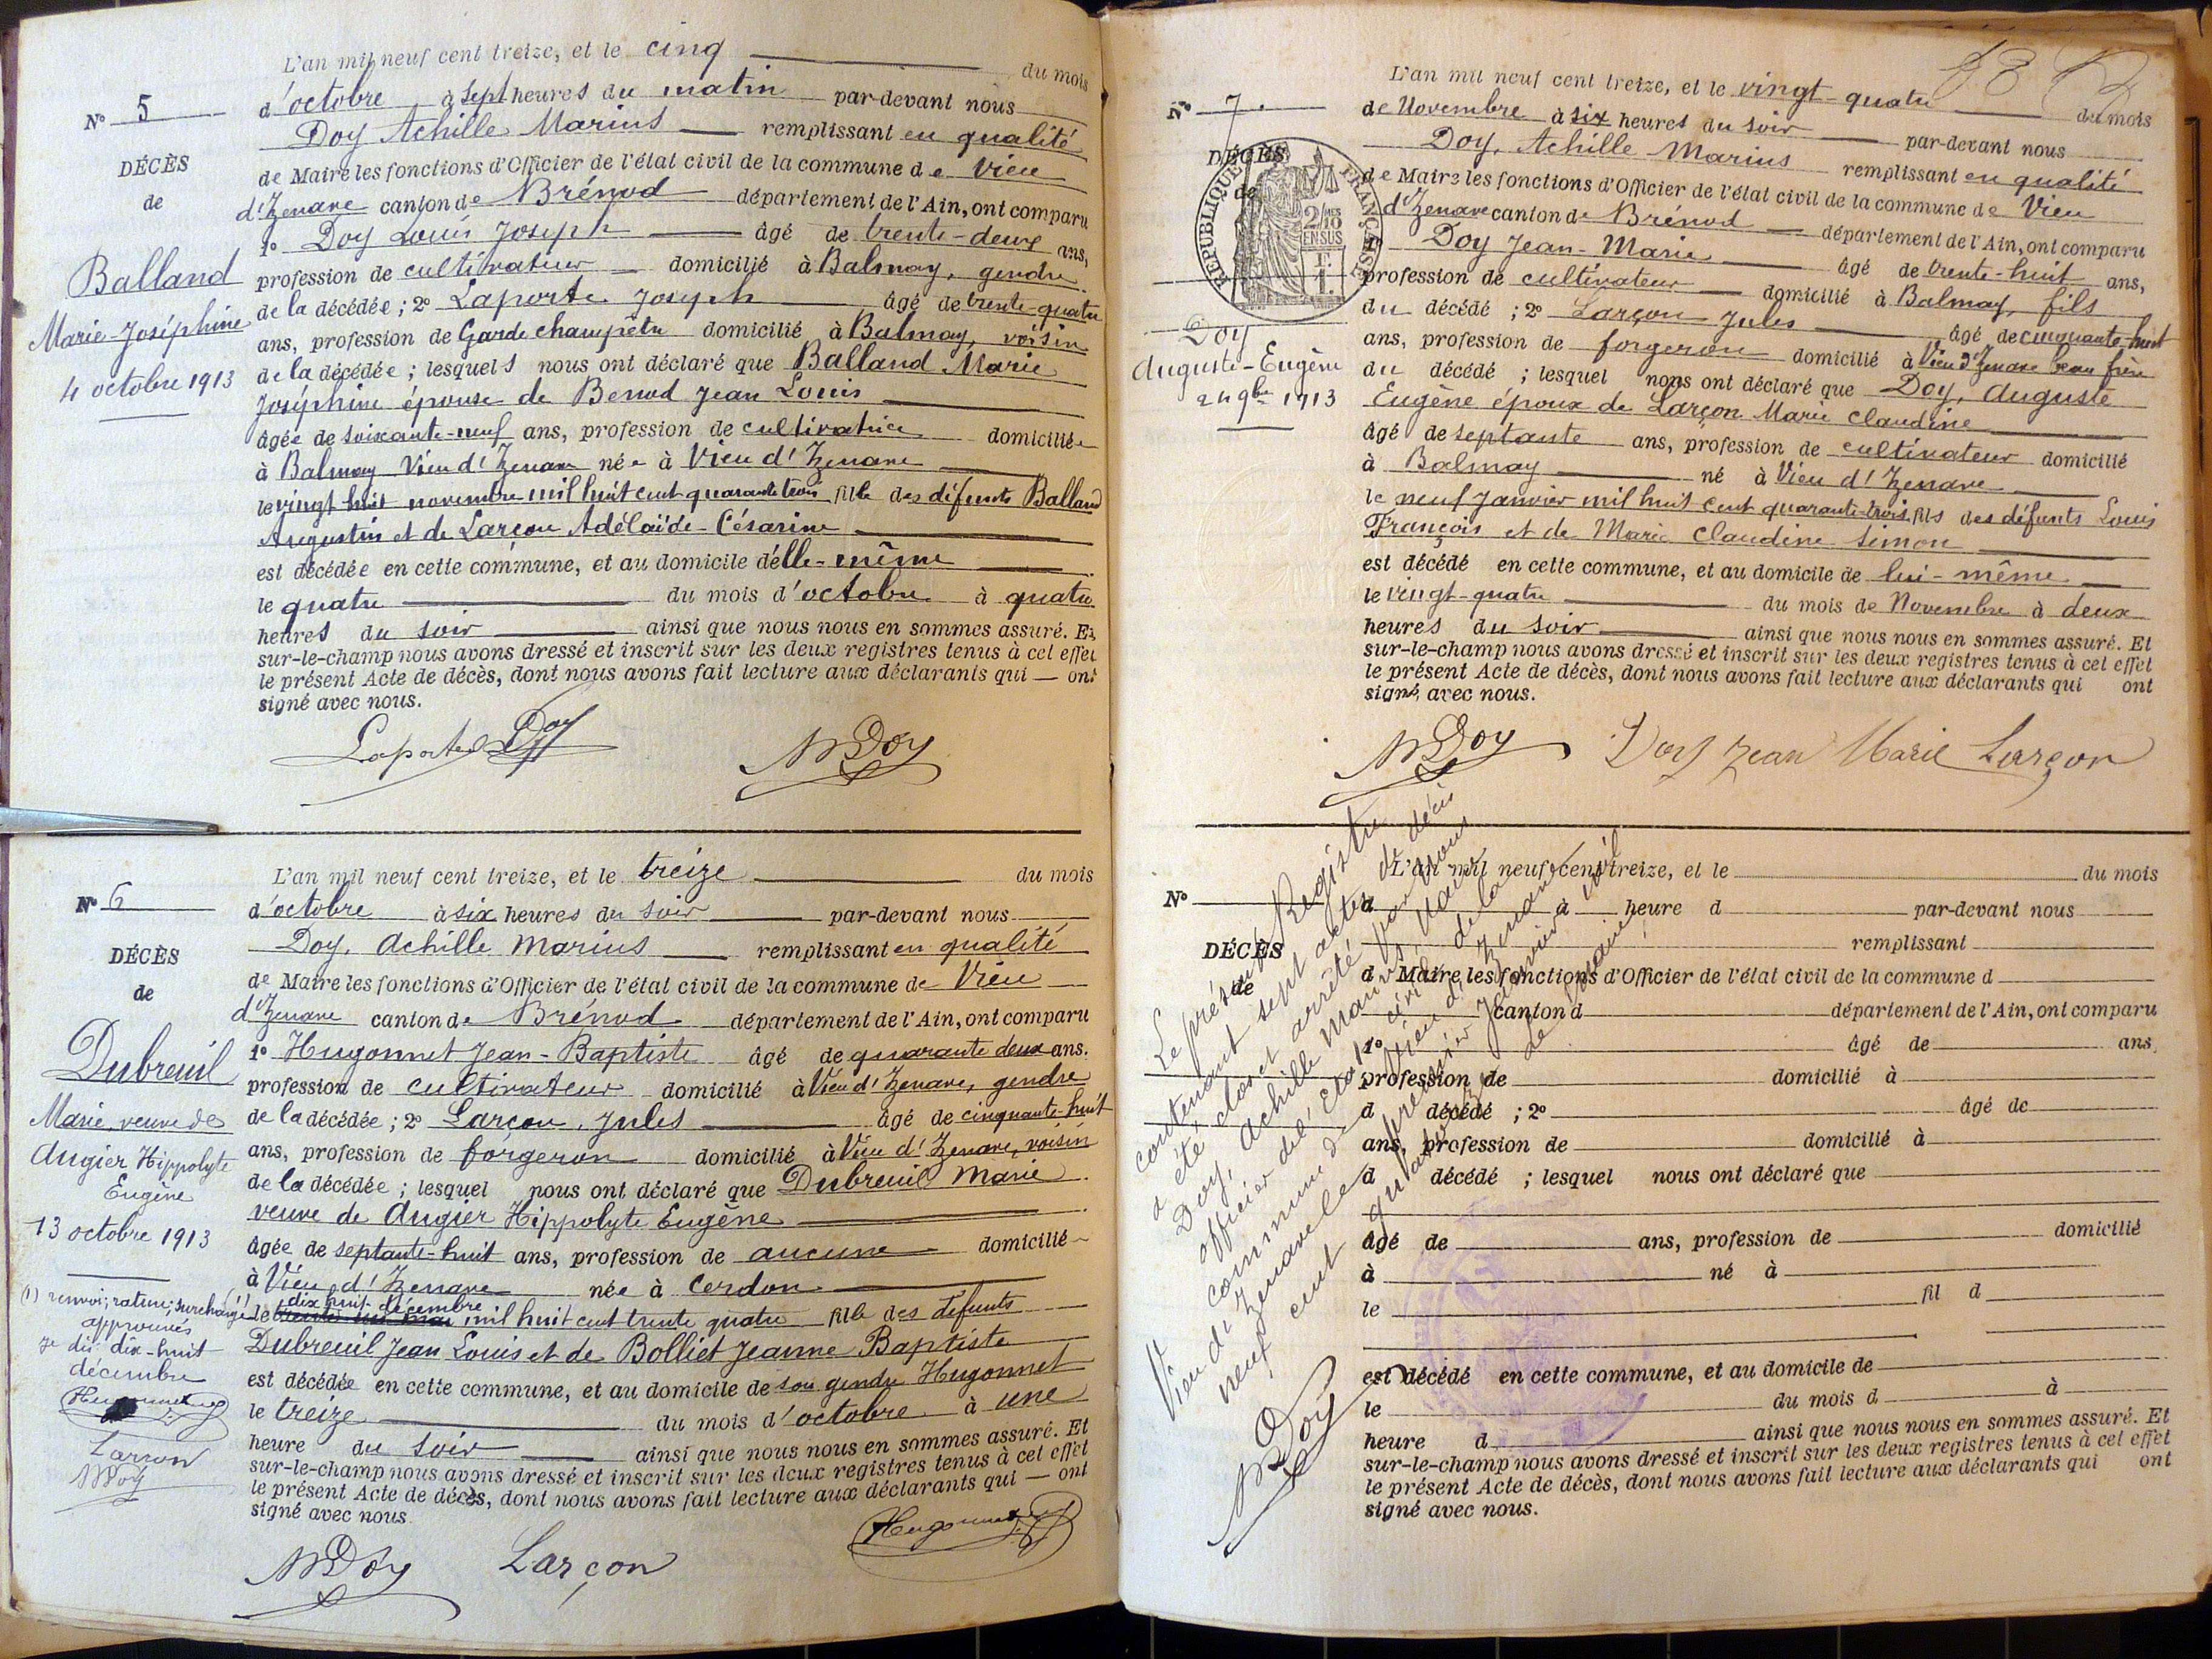 L'an mil neuf cent treize, et le cinq du mois
N° 5
d'octobre à sept heures du matin par-devant nous
Doy Achille Marius remplissant en qualité
DÉCÈS
de
de Maire les fonctions d'Officier de l'état civil de la commune de Vieu
d'Izenave canton de Brénod département de l'Ain, ont comparu
1° Doy Louis Joseph âgé de trente-deux ans,
Balland
Marie-Joséphine
4 octobre 1913
profession de cultivateur domicilié à Balmay, gendre
de la décédée ; 2° Laporte Joseph âgé de trente-quatre
ans, profession de Garde champêtre domicilié à Balmay, voisin
de la décédée ; lesquels nous ont déclaré que Balland Marie
Joséphine épouse de Benod Jean Louis
âgée de soixante-neuf ans, profession de cultivatrice domiciliée
à Balmay Vieu d'Izenave née à Vieu d'Izenave
le vingt huit novembre mil huit cent quarante trois fille des défunts Balland
Augustin et de Larçon Adélaïde-Césarine
est décédée en cette commune, et au domicile d'elle-même
le quatre du mois d'octobre à quatre
heures du soir ainsi que nous nous en sommes assuré. Et
sur-le-champ nous avons dressé et inscrit sur les deux registres tenus à cet effet
le présent Acte de décès, dont nous avons fait lecture aux déclarants qui — ont
signé avec nous.
Laporte Doy MDoy
L'an mil neuf cent treize, et le treize du mois
N° 6
d'octobre à six heures du soir par-devant nous
Doy, Achille Marius remplissant en qualité
DÉCÈS
de
de Maire les fonctions d'Officier de l'état civil de la commune de Vieu
d'Izenave canton de Brénod département de l'Ain, ont comparu
1° Hugonnet Jean-Baptiste âgé de quarante deux ans.
Dubreuil
Marie, veuve de
Augier Hippolyte
Eugène
13 octobre 1913
profession de cultivateur domicilié à Vieu d'Izenave, gendre
de la décédée ; 2° Larçon, Jules âgé de cinquante-huit
ans, profession de forgeron domicilié à Vieu d'Izenave, voisin
de la décédée ; lesquel nous ont déclaré que Dubreuil Marie
veuve de Augier Hippolyte Eugène
âgée de septante-huit ans, profession de aucune domicilié
à Vieu d'Izenave née à Cerdon
(1) renvoi; rature; surcharge
approuvés
Je dis dix-huit
décembre
Hugonnet
Larçon
MDoy
(1) dix huit décembre
le mil huit cent trente quatre fille des défunts
Dubreuil Jean Louis et de Bolliet Jeanne Baptiste
est décédée en cette commune, et au domicile de son gendre Hugonnet
le treize du mois d'octobre à une
heure du soir ainsi que nous nous en sommes assuré. Et
sur-le-champ nous avons dressé et inscrit sur les deux registres tenus à cet effet
le présent Acte de décès, dont nous avons fait lecture aux déclarants qui — ont
signé avec nous.
MDoy Larçon Hugonnet
L'an mil neuf cent treize, et le vingt-quatre du mois
N° 7.
de Novembre à six heures du soir par-devant nous
Doy, Achille Marius remplissant en qualité
DÉCÈS
de
RÉPUBLIQUE FRANÇAISE
2/10 EN SUS
de Maire les fonctions d'Officier de l'état civil de la commune de Vieu
d'Izenave canton de Brénod département de l'Ain, ont comparu
1° Doy Jean-Marie âgé de trente-huit ans,
profession de cultivateur domicilié à Balmay, fils
Doy
Auguste-Eugène
24 9bre 1913
du décédé ; 2° Larçon Jules âgé de cinquante-huit
ans, profession de forgeron domicilié à Vieu d'Izenave beau frère
du décédé ; lesquel nous ont déclaré que Doy, Auguste
Eugène époux de Larçon Marie Claudine
âgé de septante ans, profession de cultivateur domicilié
à Balmay né à Vieu d'Izenave
le neuf janvier mil huit cent quarante-trois fils des défunts Louis
François et de Marie Claudine Simon
est décédé en cette commune, et au domicile de lui-même
le vingt-quatre du mois de Novembre à deux
heures du soir ainsi que nous nous en sommes assuré. Et
sur-le-champ nous avons dressé et inscrit sur les deux registres tenus à cet effet
le présent Acte de décès, dont nous avons fait lecture aux déclarants qui ont
signé avec nous.
MDoy Doy Jean Marie Larçon
L'an mil neuf cent treize, et le du mois
N°
d à heure d par-devant nous
remplissant
DÉCÈS
de
d Maire les fonctions d'Officier de l'état civil de la commune d
canton d département de l'Ain, ont comparu
1° âgé de ans,
profession de domicilié à
d décédé ; 2° âgé de
ans, profession de domicilié à
d décédé ; lesquel nous ont déclaré que
âgé de ans, profession de domicilié
à né à
le fil d
est décédé en cette commune, et au domicile de
le du mois d à
heure d ainsi que nous nous en sommes assuré. Et
sur-le-champ nous avons dressé et inscrit sur les deux registres tenus à cet effet
le présent Acte de décès, dont nous avons fait lecture aux déclarants qui ont
signé avec nous.
Le présent Registre
contenant sept actes de décès
a été clos et arrêté par nous
Doy, Achille Marius Maire
officier de l'état civil de la
commune de Vieu d'Izenave
Vieu d'Izenave le premier janvier mil
neuf cent quatorze
Le Maire
MDoy